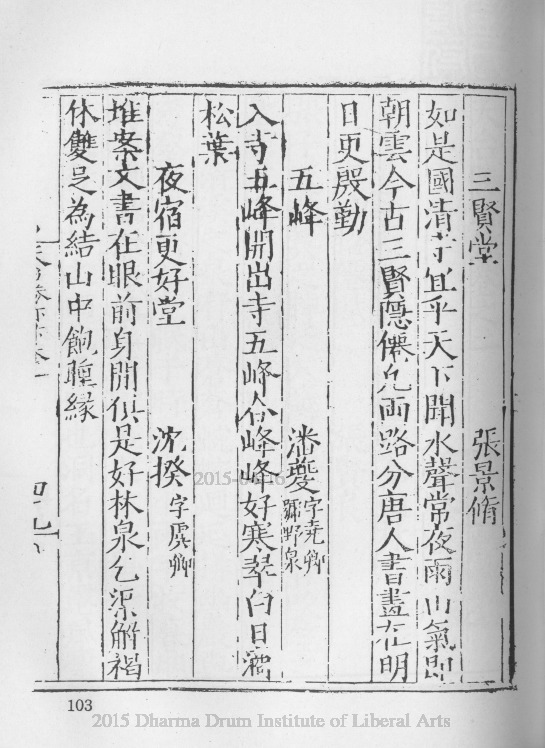 三賢堂 張景脩
如是國清寺宜乎天下聞水聲常夜雨山氣即
朝雲今古三賢隱儒凢兩路分唐人書畫在明
日更殷勤
五峰 潘夔字堯卿號野泉
入寺五峰開出寺五峰合峰峰好寒翠白日
松葉
夜宿更好堂 沈揆字虞卿
堆案文書在眼前身閒俱是好林泉乞凉解褐
休雙足為結山中飽睡緣
103
2015-04-16
2015 Dharma Drum Institute of Liberal Arts